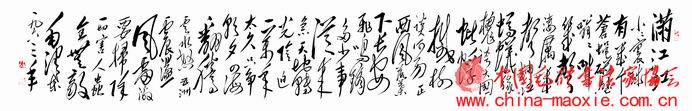 满江红
小小寰球
有几个
苍蝇碰壁
嗡嗡叫
几声
凄厉几声
抽泣
蚂蚁缘
槐夸大国
蚍蜉
撼树
谈何易正
西风落叶
下长安
飞鸣镝
多少事
从来急
天地转
光阴迫
一万年
太久只争
朝夕四海
翻腾
云水怒五洲
震荡
风雷激
要扫除
一切害人虫
全无敌
毛泽东
www.china-maoxie.com.cn